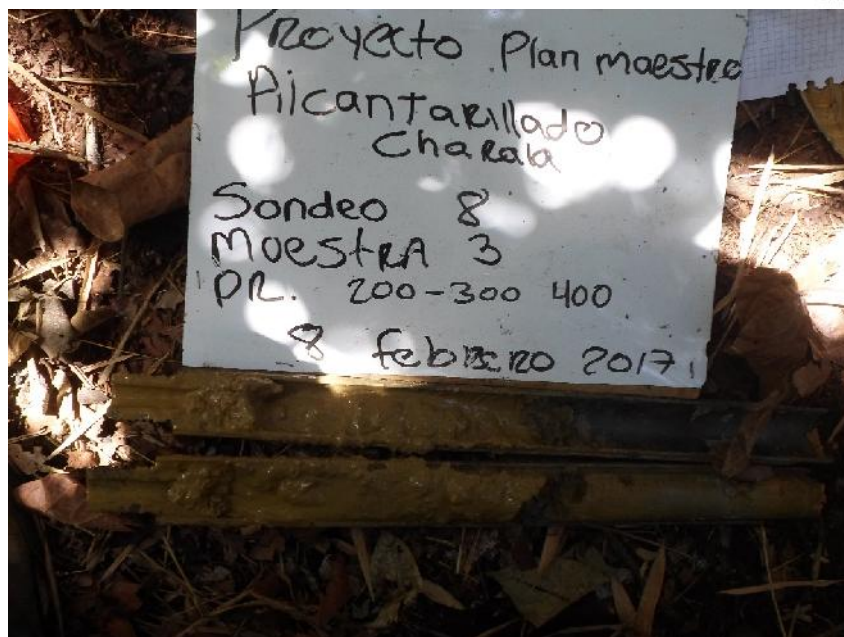 Proyecto Plan maestro
Alcantarillado
Charala
Sondeo 8
Muestra 3
PR. 200-300 400
8 febrero 2017